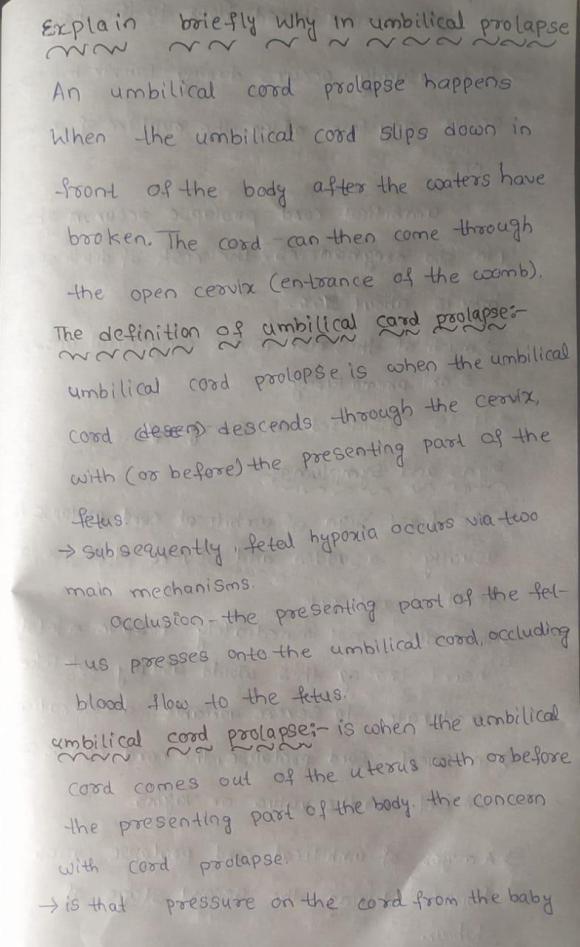 Explain briefly why in umbilical prolapse
An umbilical cord prolapse happens
When the umbilical cord slips down in
front of the body after the waters have
broken. The cord can then come through
the open cervix (entrance of the womb).
The definition of umbilical card prolapse:-
umbilical cord prolopse is when the umbilical
cord descends through the cervix,
with (or before) the presenting part of the
fetus.
→ subsequently, feted hypoxia occurs via two
main mechanisms.
occlusion - the presenting part of the fet-
-us presses onto the umbilical cord, occluding
blood flow to the fetus.
umbilical cord prolapse:- is when the umbilical
cord comes out of the uterus with or before
the presenting part of the body. the concern
with cord prolapse.
→ is that pressure on the cord from the baby